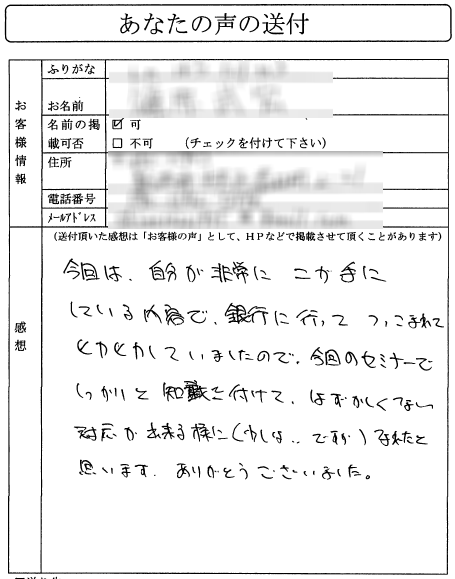 あなたの声の送付
お客様情報
ふりがな
お名前
名前の掲載可否
☑ 可
☐ 不可 (チェックを付けて下さい)
住所
電話番号
メールアドレス
感想
(送付頂いた感想は「お客様の声」として、HPなどで掲載させて頂くことがあります)
今回は、自分が非常に ニが手に
している内容で、銀行に行って つっこまれて
ヒヤヒヤしていましたので、今回のセミナーで
しっかりと 知識を付けて、はずかしくない
対応が出来る様に(少しは..ですが)なれたと
思います。ありがとうございました。